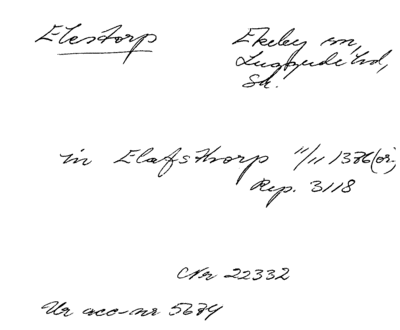 Elestorp
Ekeby sn,
Luggude hd,
Sk.
in Elafsthorp 11/11 1386 (or.)
Rep. 3118
CNr 22332
Ur acc-nr 5674